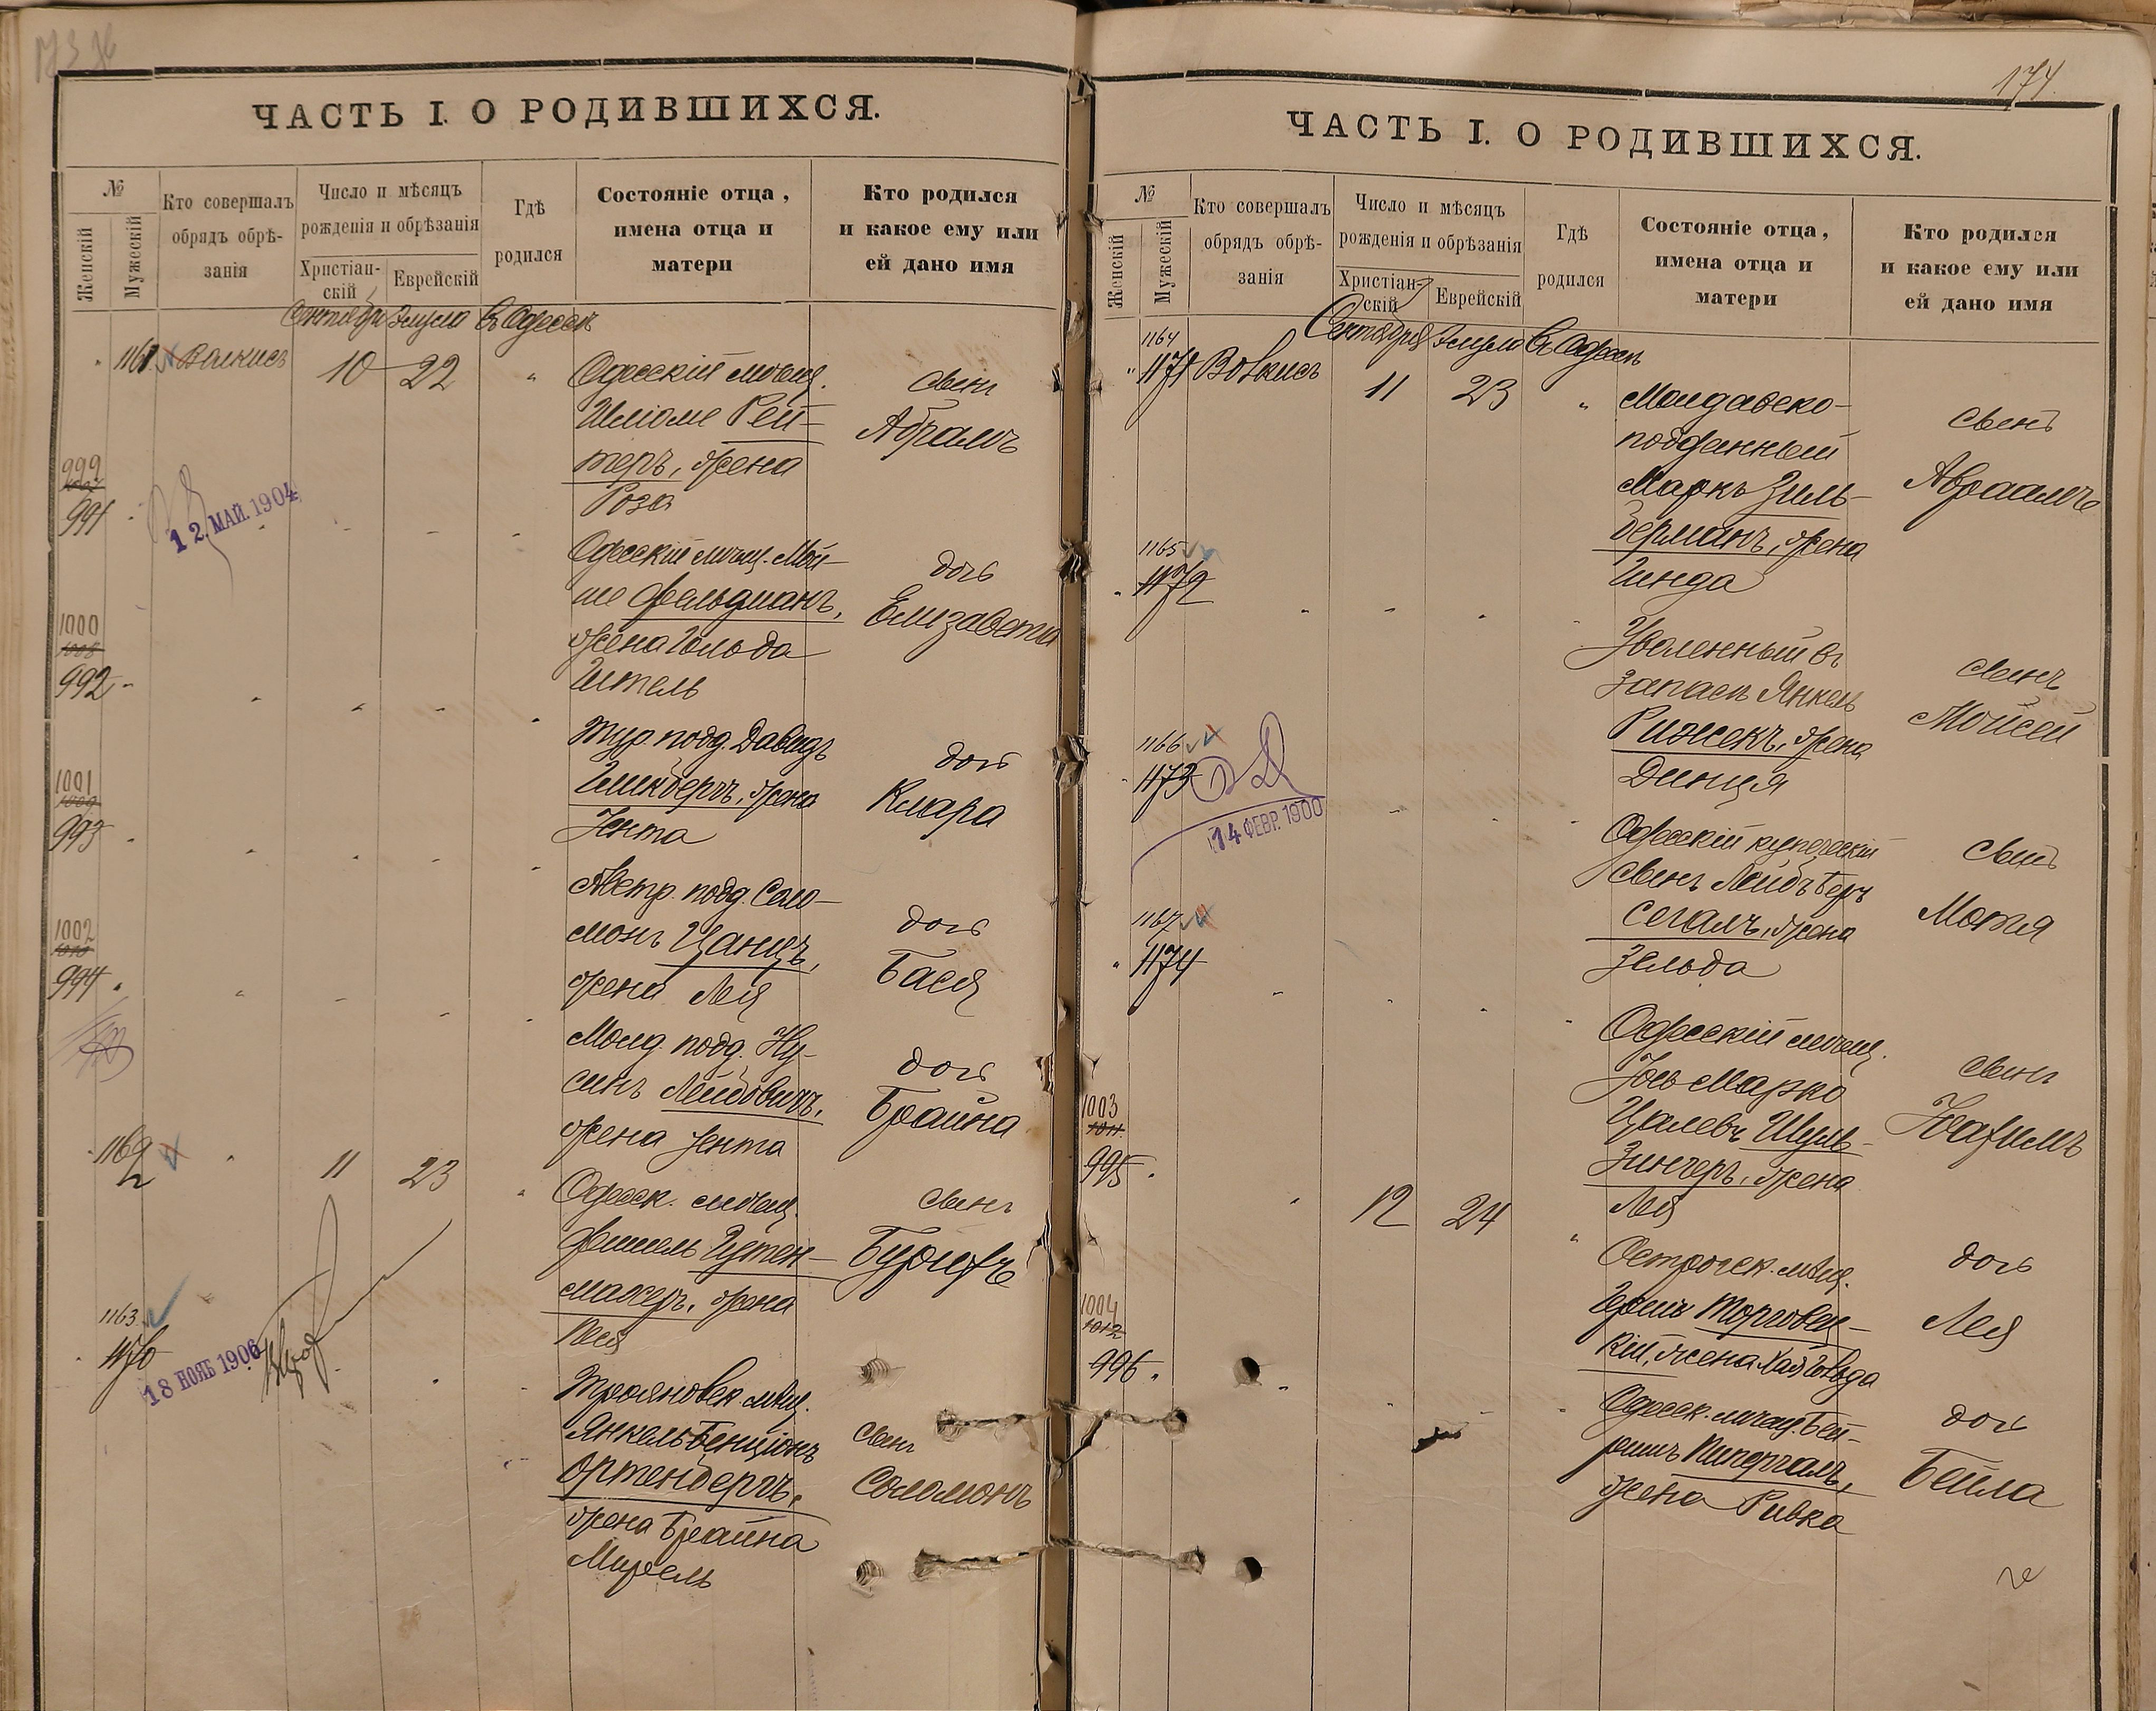 ЧАСТЬ I. О РОДИВШИХСЯ.
№
Женскій
Мужескій
Кто совершалъ
обрядъ обрѣ-
занія
Число и мѣсяцъ
рожденія и обрѣзанія
Христіан-
скій
Еврейскій
Гдѣ
родился
Состояніе отца,
имена отца и
матери
Кто родился
и какое ему или
ей дано имя
Сентября Элула въ Одессѣ
10 22
Одесскій мѣщ.
Шліоме Рей-
теръ, жена
Роза
сынъ
Абрамъ
999
991
12 МАЙ. 1904
Одесскій мѣщ. Мой-
ше Фельдманъ,
жена Гольда
дочь
Елизавета
1000
1008
992
Тур. подд. Давидъ
жена
Іента
дочь
Клара
1001
1009
993
Австр. подд. Соло-
монъ Цанцъ,
жена Лея
дочь
Бася
1002
1010
994
Молд. подд. Ну-
синъ Лейбовичъ,
жена Іента
дочь
Брайна
1169
2
11 23
Одесск. мѣщ.
Фишель Гутен-
махеръ, жена
Лея
сынъ
Бурихъ
1163
1170
18 НОЯБ 1906
Трояновск. мѣщ.
Янкель Бенціонъ
Ортенбергъ,
жена Брайна
Мирель
сынъ
Соломонъ
174.
ЧАСТЬ I. О РОДИВШИХСЯ.
№
Женскій
Мужескій
Кто совершалъ
обрядъ обрѣ-
занія
Число и мѣсяцъ
рожденія и обрѣзанія
Христіан-
скій
Еврейскій
Гдѣ
родился
Состояніе отца,
имена отца и
матери
Кто родился
и какое ему или
ей дано имя
Сентября Элула въ Одессѣ
1164
1171
11 23
Молдавско-
подданный
Маркъ Зиль-
берманъ, жена
Гинда
сынъ
Авраамъ
1165
1172
Уволенный въ
запасъ Янкель
Рижекъ, жена
Динця
сынъ
Мойсей
1166
1173
14 ФЕВР. 1900
Одесскій купеческій
сынъ Лейбъ Беръ
Сегалъ, жена
Зельда
сынъ
Мотя
1167
1174
Одесскій мѣщ.
Марко
Шуль-
зингеръ, жена
Лея
сынъ
1003
1011
995
12 24
Острожск. мѣщ.
Гершъ Торговец-
кій, жена Хая Гольда
дочь
Лея
1004
1012
996
Одесск. мѣщ. Бей-
жена Ривка
дочь
Бейла